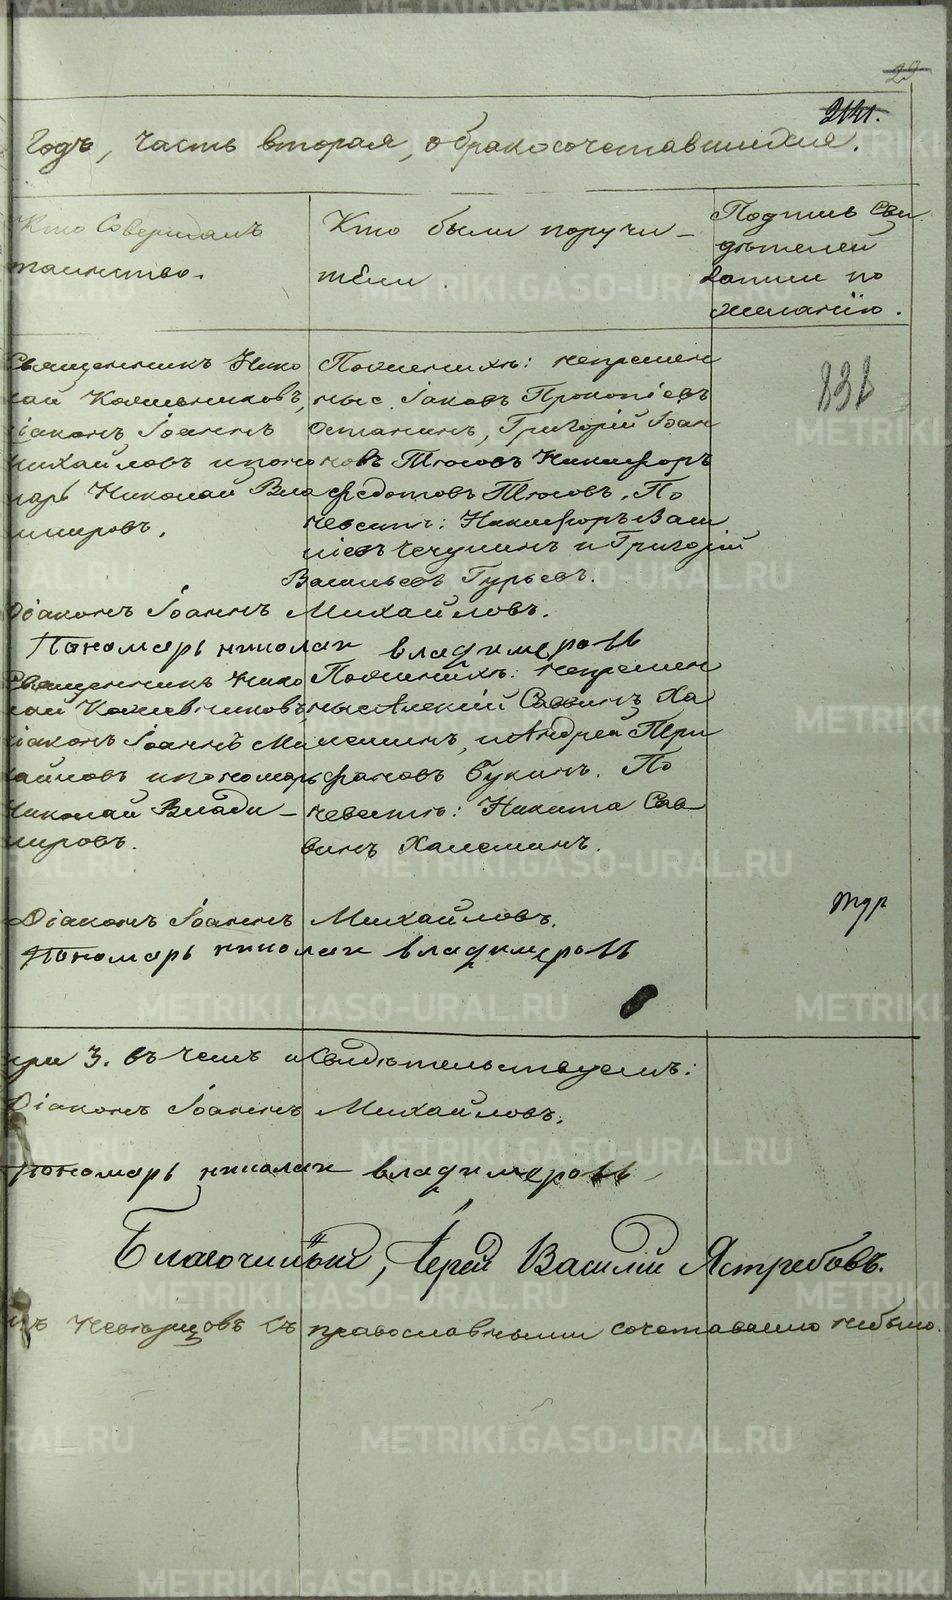 23
2141.
годъ, часть вторая, о бракосочетавшихся.
Кто совершалъ
таинство.
Кто были поручи-
тели.
Подпись сви
дѣтелей
записи по
желанію.
Священникъ Нико
лай
діаконъ Іоаннъ
Михайловъ и поно
марь Николай Вла
димировъ.
Поженихѣ: непремен
ные Іаковъ Прокопіевъ
Останинъ, Григорій Іоан
новъ Тюсовъ Никифоръ
Федотовъ Тюсовъ. По
невестѣ: Никифоръ Васи
ліевъ Чечулинъ и Григорій
Васильевъ Гурьевъ.
838
Діаконъ Іоаннъ Михайловъ.
Пономарь николаи владимеровъ
Священникъ Нико
лай
діаконъ Іоаннъ Ми
хайловъ и пономарь
Николай Влади-
мировъ.
Поженихѣ: непремен
ные Алексій Саввинъ Ха
леминъ, и Андрей Три
фановъ Букинъ. По
невестѣ: Никита Сав
винъ Халеминъ.
Діаконъ Іоаннъ Михайловъ.
Пономарь николаи владимеровъ
при 3. въ чемъ и свидѣтельствуемъ:
Діаконъ Іоаннъ Михайловъ.
Пономарь николаи владимеровъ
Благочинный, Іерей Василій Ястребовъ.
съ православными сочетаваемо небыло.
METRIKI.GASO-URAL.RU